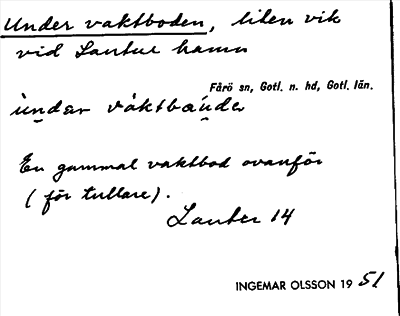 Under vaktboden, liten vik
vid Lauter hamn
Fårö sn, Gotl. n. hd, Gotl. län.
ùndar våktbäudar
En gammal vaktbod ovanför
(för tullare).
Lauter 14
INGEMAR OLSSON 19 51